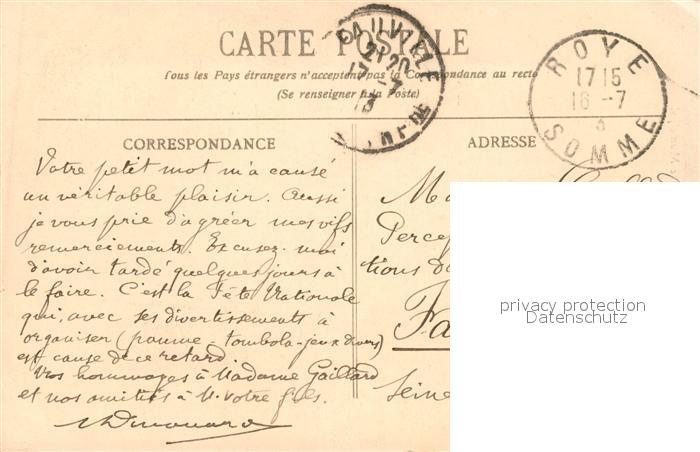 CARTE POSTALE
Tous les Pays étrangers n'acceptent pas la Correspondance au recto
(Se renseigner à la Poste)
ROYE
17 15
16 -7
SOMME
CORRESPONDANCE
Votre petit mot m'a causé
un véritable plaisir. Aussi
je vous prie d'agréer mes vifs
remerciements. Excusez-moi
d'avoir tardé quelques jours à
le faire. C'est la Fête Nationale
qui, avec ses divertissements à
organiser (paume - tombola - jeux divers)
est cause de ce retard.
Mes hommages à Madame Gaillard
et nos amitiés à M. votre fils.
ADRESSE
Percep
tions d
Fa
Seine
privacy protection
Datenschutz